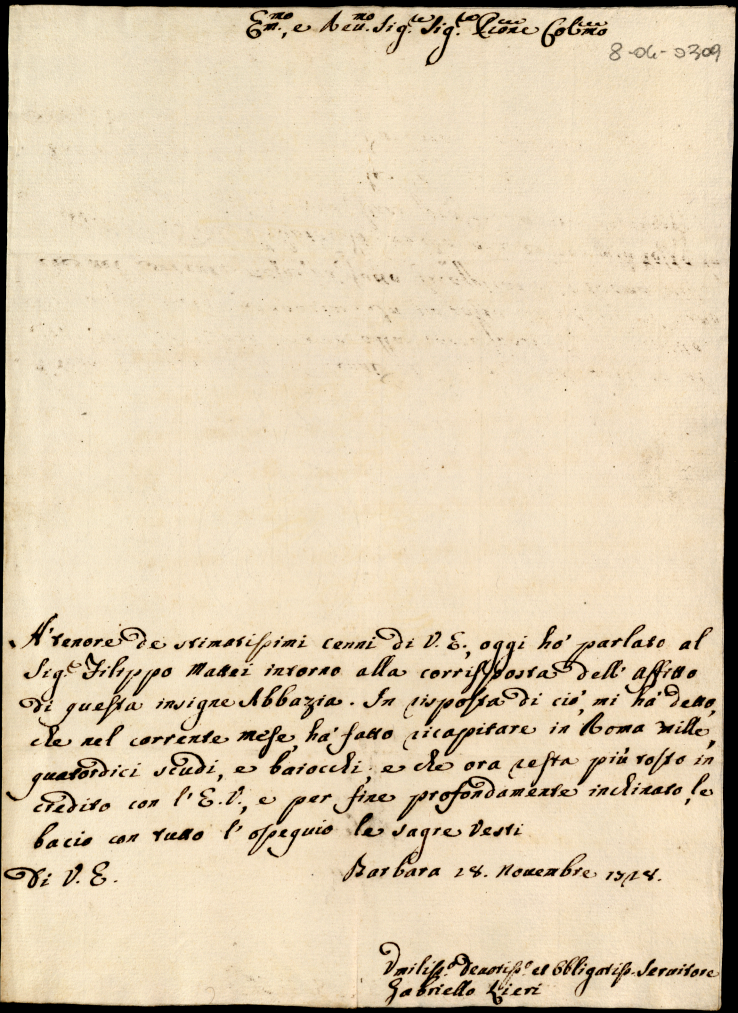 Em.mo, e Reu.mo Sig.re Sig.re P.rone Col.mo
8-04-0309
A' tenore de stimatissimi cenni di V. E., oggi hò parlato al
Sig.r Filippo Mattei intorno alla corrisposta dell' affitto
di questa insigne Abbazia. In risposta di ciò, mi hà detto,
che nel corrente mese, hà fatto ricapitare in Roma mille,
quatordici scudi, e baiocchi, e che ora resta più tosto in
credito con l' E. V., e per fine profondamente inchinato, le
bacio con tutto l' ossequio le sagre vesti
Di V. E.
Barbara 28. Nouembre 1728.
Vmiliss.o Deuotiss.o et Obligatiss. Seruitore
Gabriello